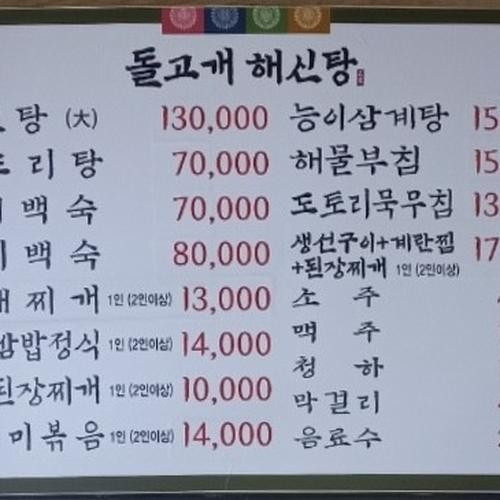 돌고개 해신탕
탕 (大) 130,000
리탕 70,000
백숙 70,000
백숙 80,000
찌개 1인 (2인이상) 13,000
쌈밥정식 1인 (2인이상) 14,000
된장찌개 1인 (2인이상) 10,000
미볶음 1인 (2인이상) 14,000
능이삼계탕 15
해물부침 15
도토리묵무침 13
생선구이+계란찜 17
+된장찌개 1인 (2인이상)
소주
맥주
청하
막걸리
음료수